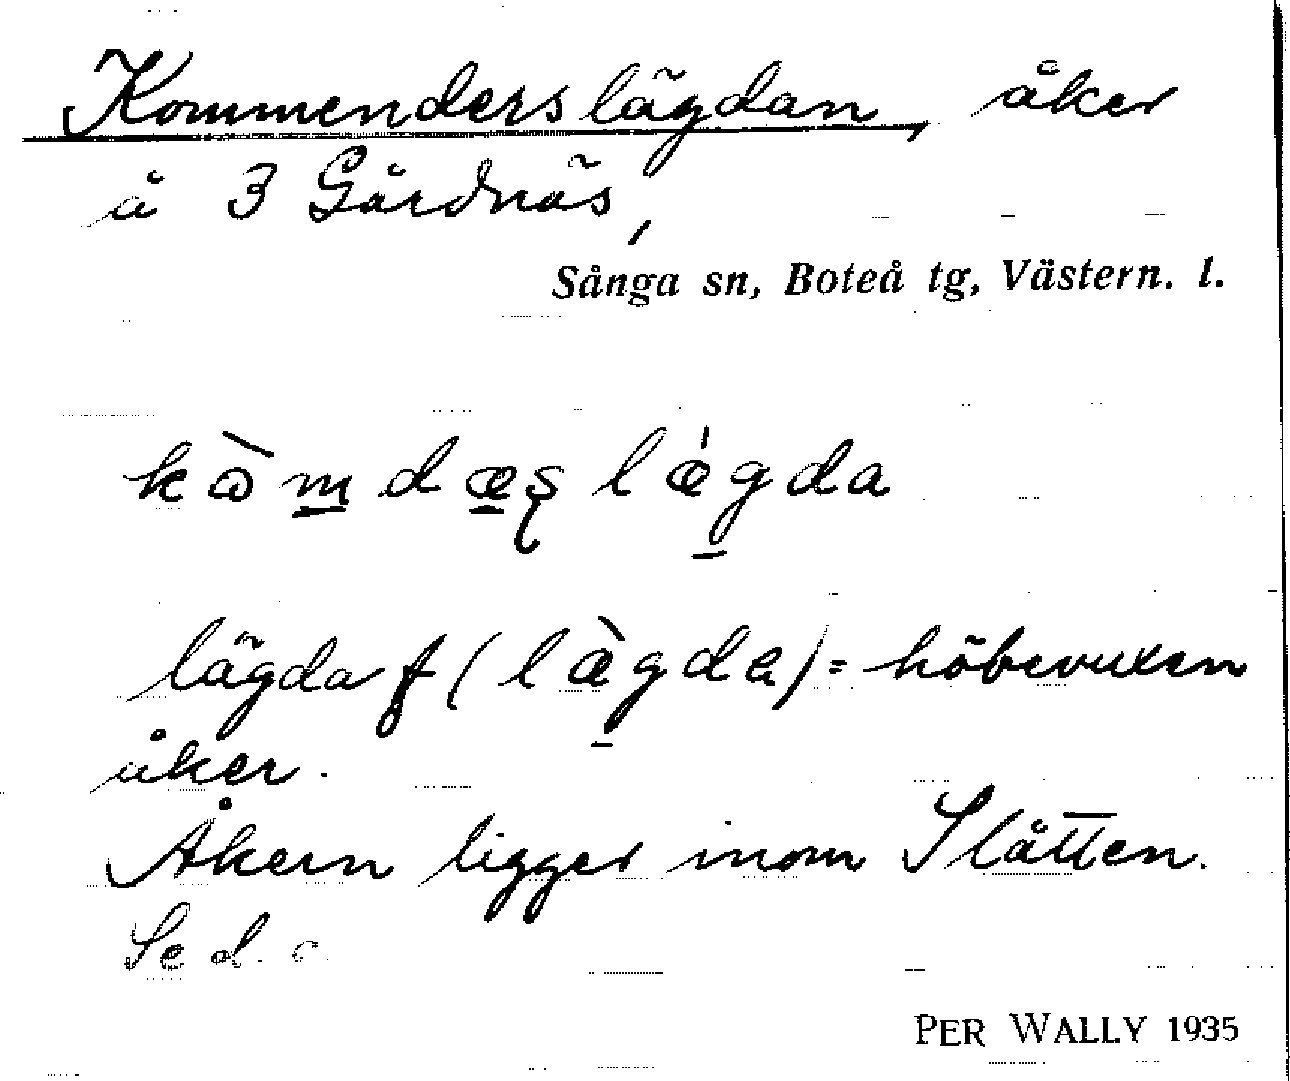 Kommenderslägdan, åker
å 3 Gårdnäs,
Sånga sn, Boteå tg, Västern. l.
kɷ̀m̲dæ̲ʂlǽgda
lägda f (læ̀gda) = höbevuxen
åker.
Åkern ligger inom Slåtten.
Se d. o
PER WALLY 1935